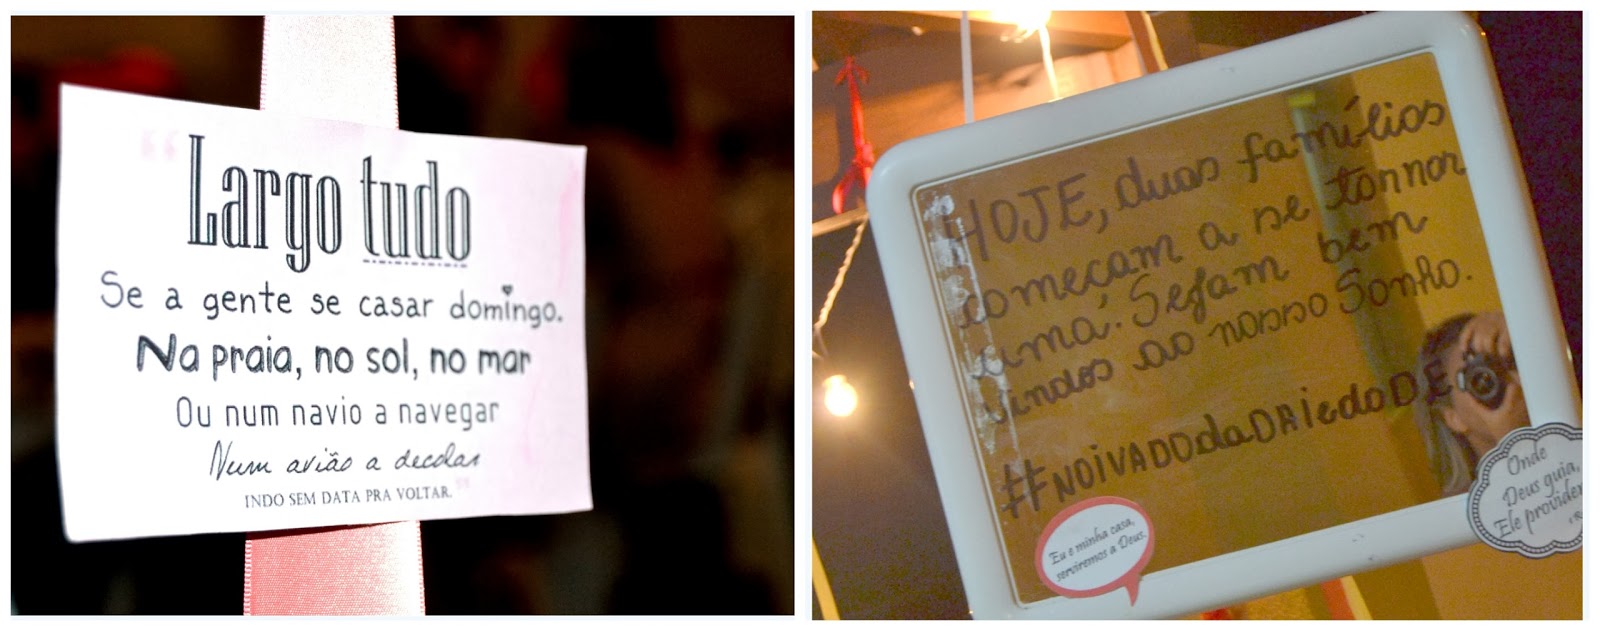 “Largo tudo
Se a gente se casar domingo.
Na praia, no sol, no mar
Ou num navio a navegar
Num avião a decolar
INDO SEM DATA PRA VOLTAR.”
HOJE, duas famílias
começam a se tornar
uma. Sejam bem
vindos ao nosso Sonho.
#NOIVADOdaDAIedoDE
Eu e minha casa,
serviremos a Deus.
Onde
Deus guia,
Ele